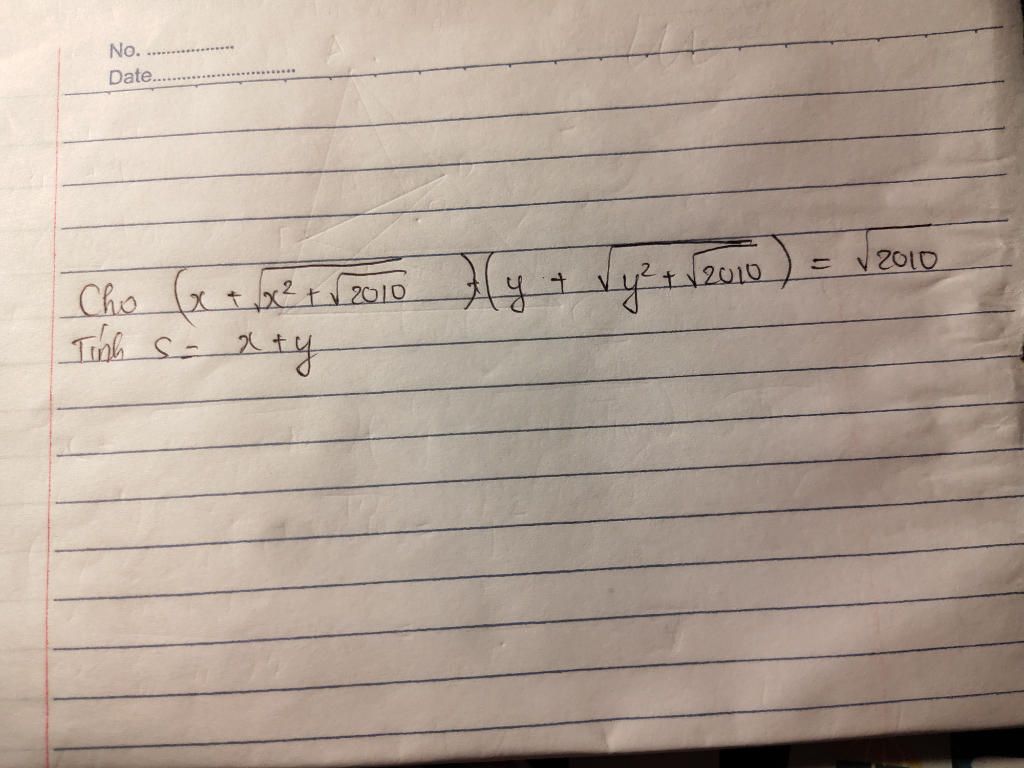 No. ..................
Date..............................
Cho (x + √(x² + √2010))(y + √(y² + √2010)) = √2010
Tính S = x + y